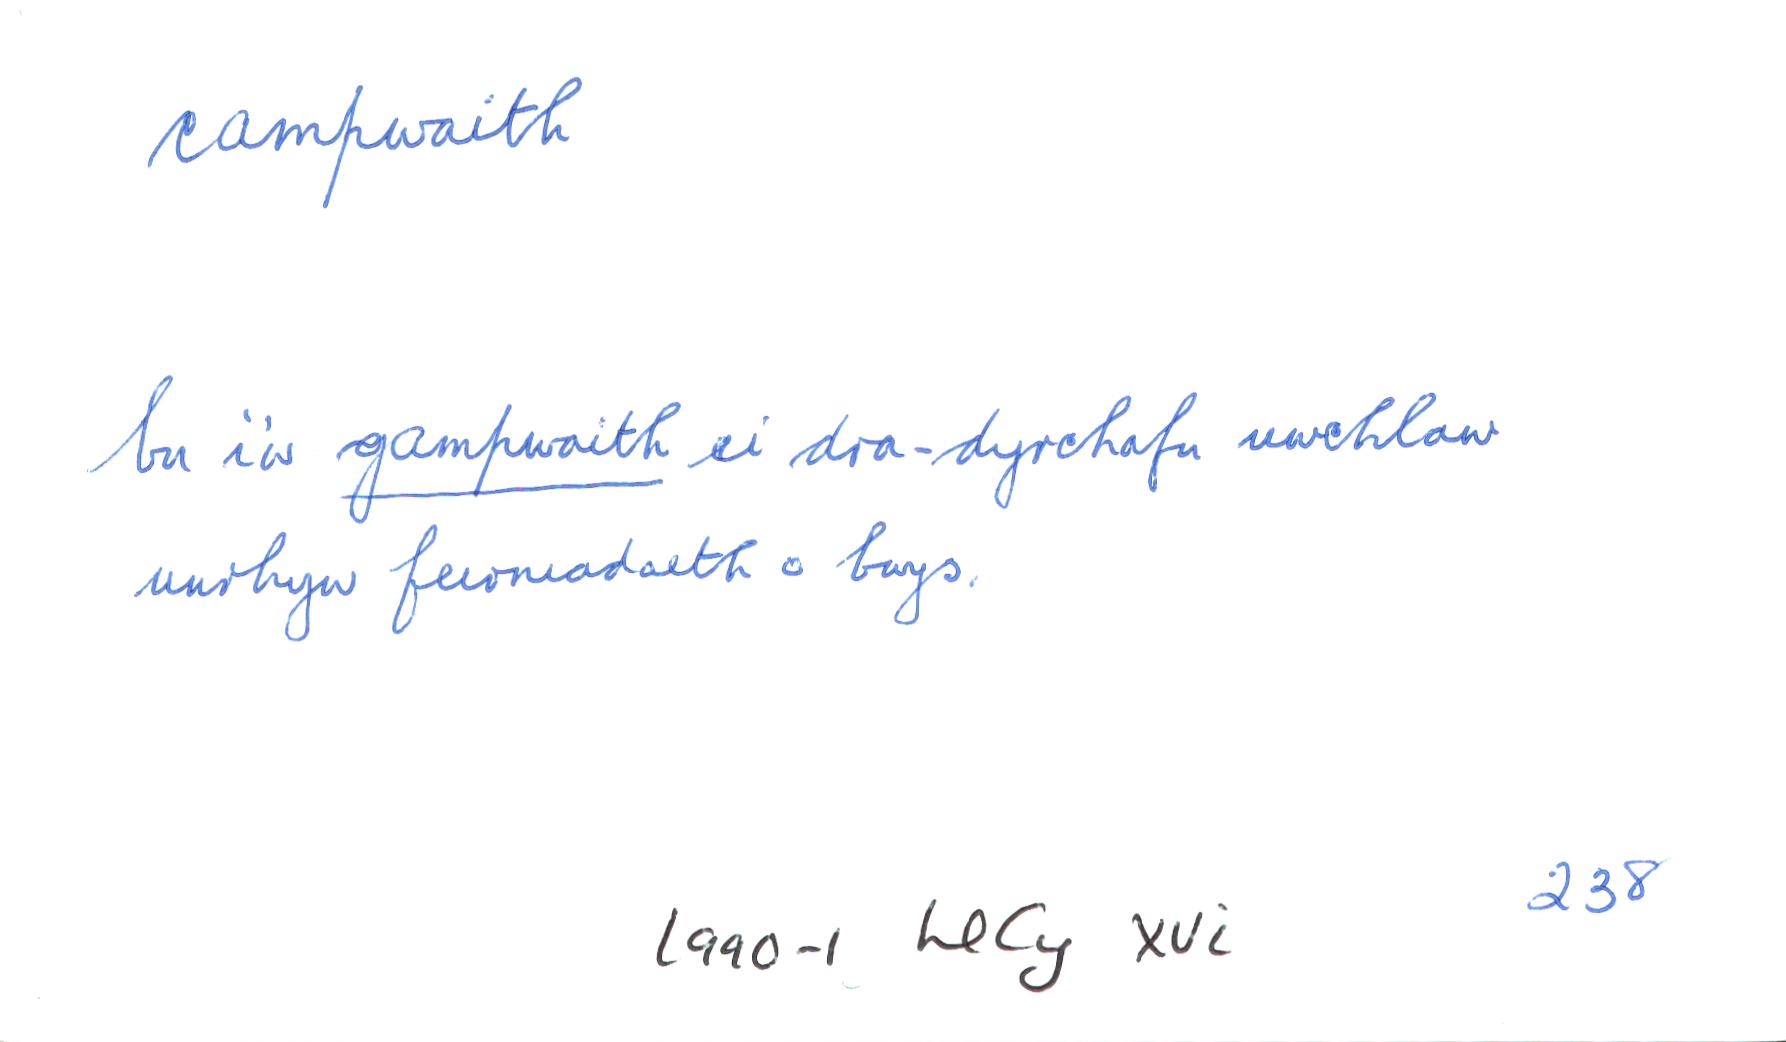 campwaith
bu i'w gampwaith ei dra-dyrchafu uwchlaw
unrhyw feirniadaeth o bwys.
238
1990-1 LlCy XVi